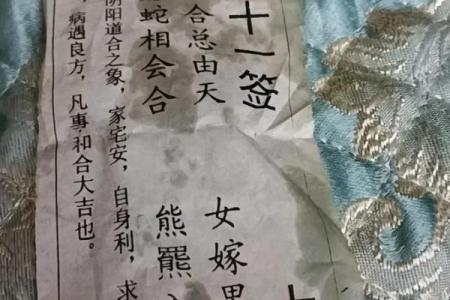 十一签
合总由天
女嫁男
蛇相会合
熊罴
阴阳道合之象，家宅安，自身利，求
，病遇良方，凡事和合大吉也。